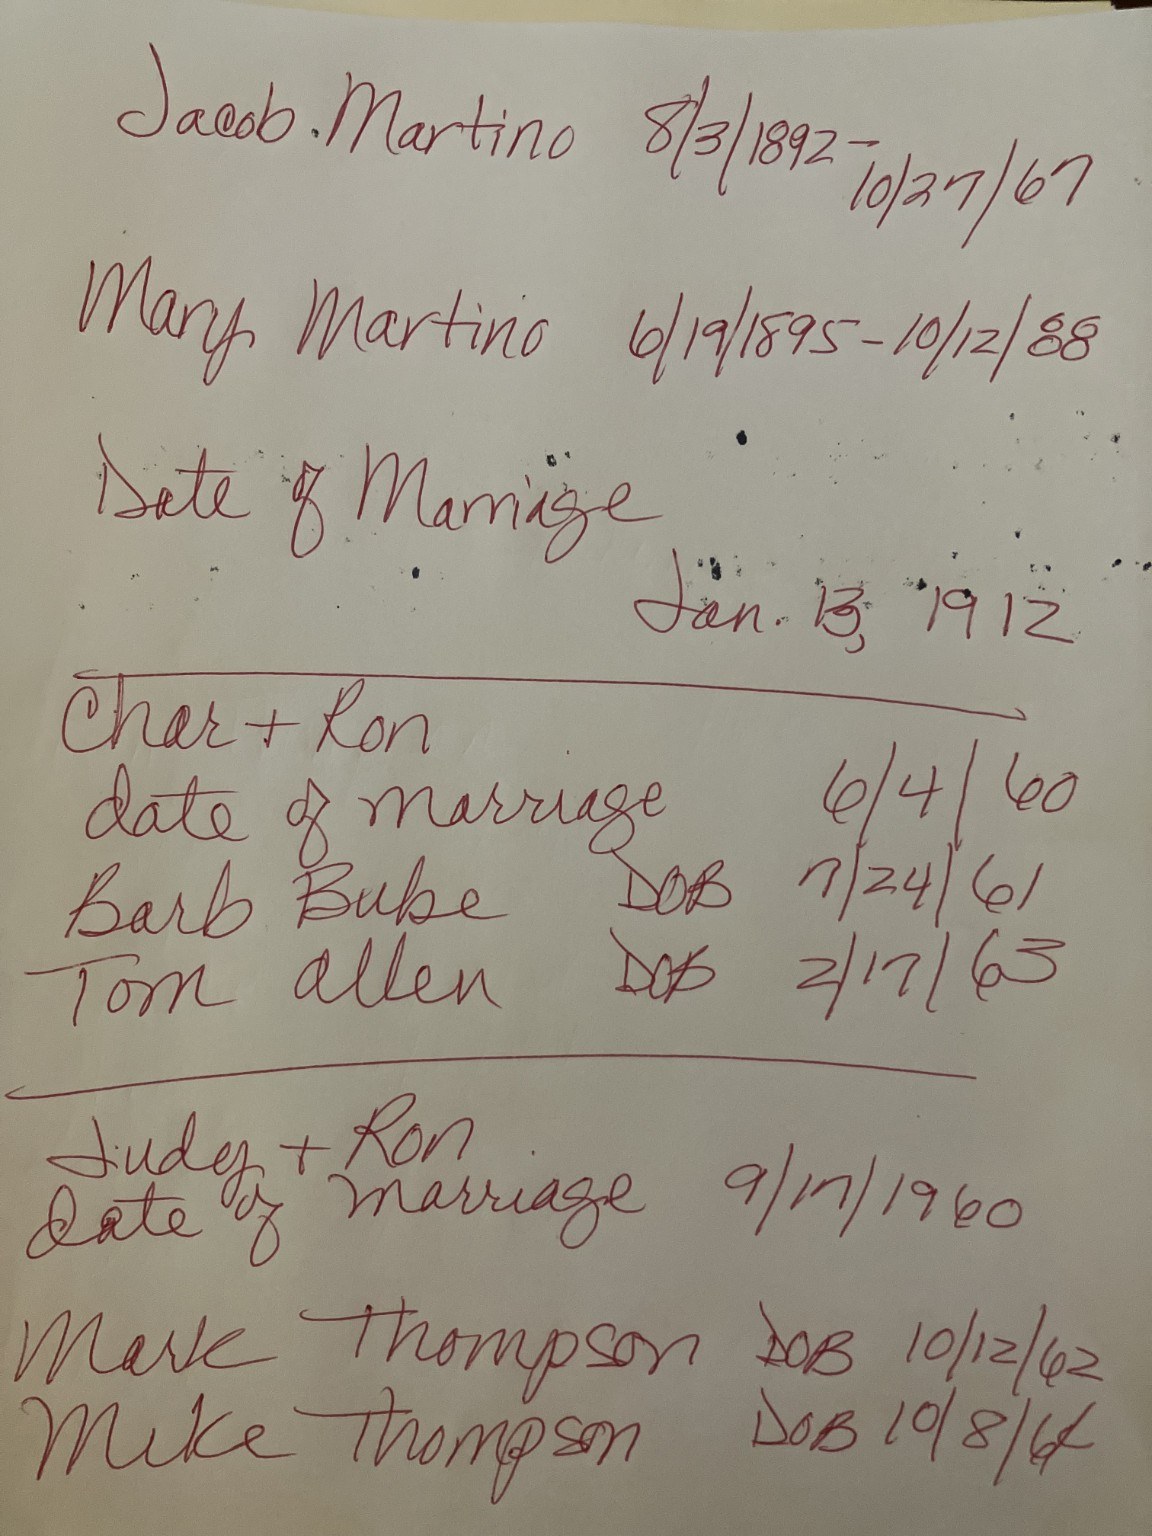 Jacob Martino 8/3/1892 -
10/27/67
Mary Martino 6/19/1895 - 10/12/88
Date of Marriage
Jan. 13, 1912
Char + Ron
date of marriage 6/4/60
Barb Bube DOB 7/24/61
Tom Allen DOB 2/17/63
Judy + Ron
date of marriage 9/17/1960
Mark Thompson DOB 10/12/62
Mike Thompson DOB 10/8/64